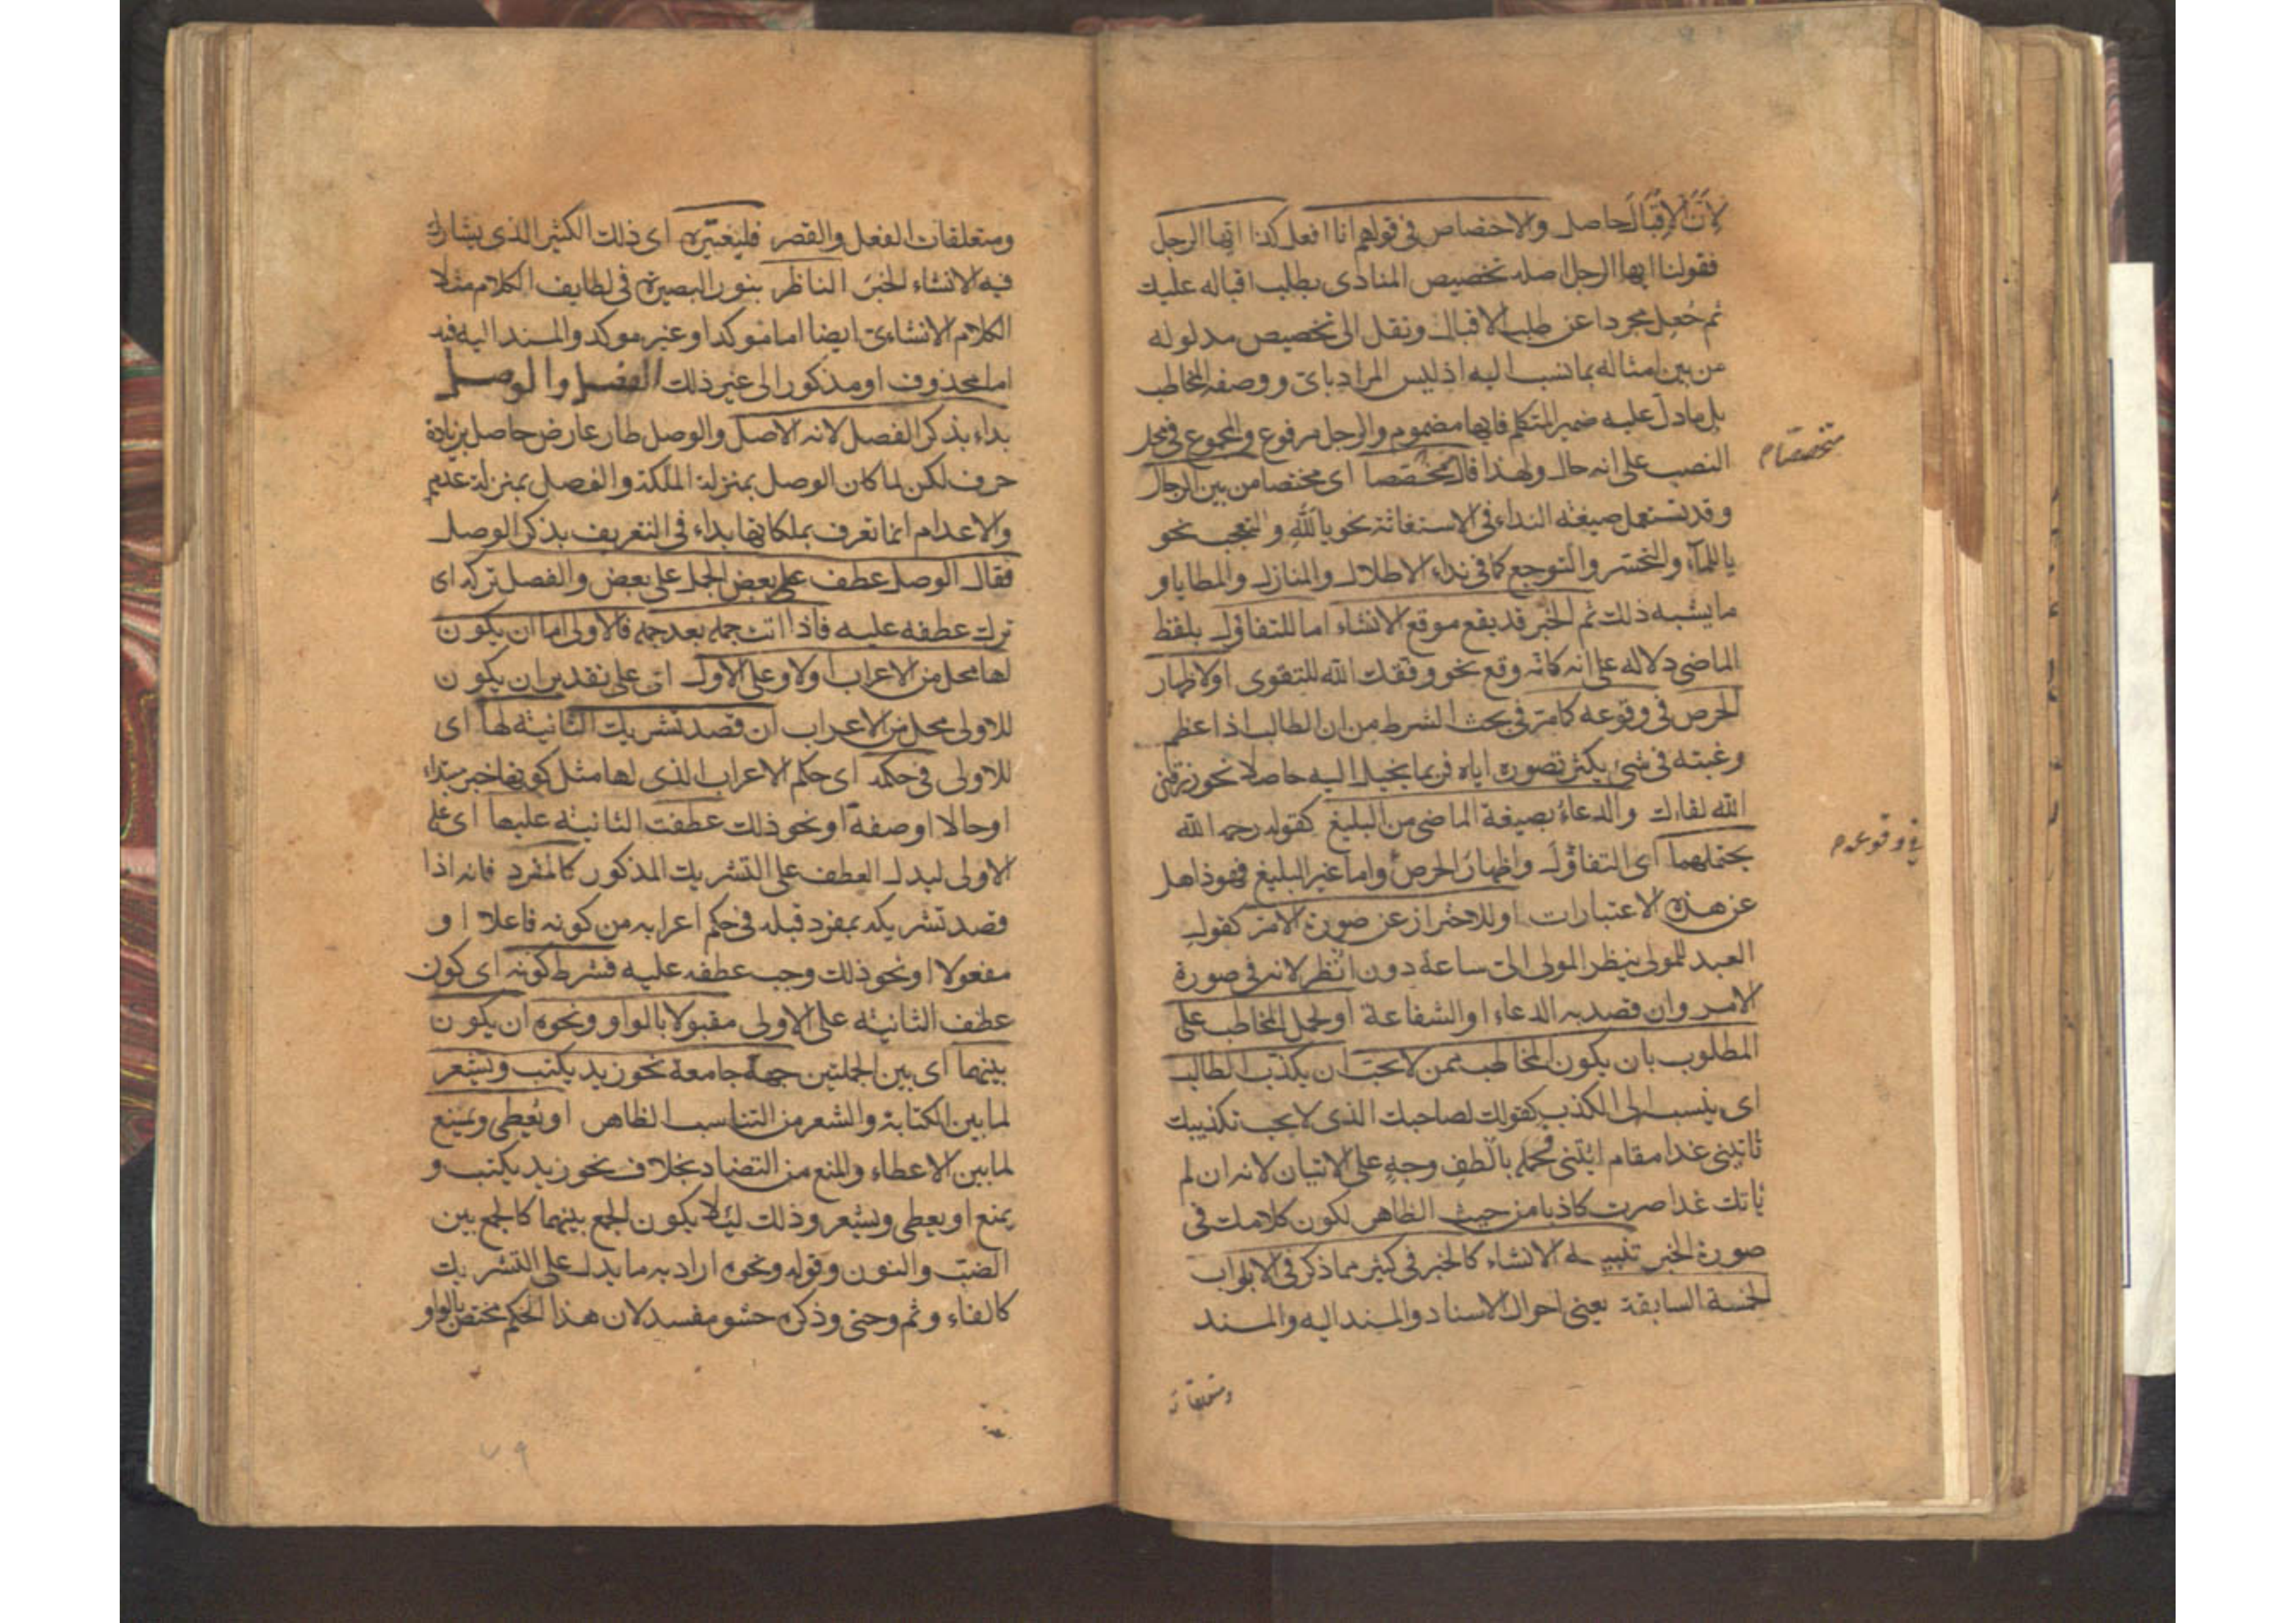 لِأَنَّ الإِقْبَالَ حاصل والاختصاص في قولهم انا افعل كذا ايّها الرجل
فقولنا ايها الرجل اصله تخصيص المنادى بطلب اقباله عليك
ثم جُعِل مجردا عن طلب الاقبال ونقل الى تخصيص مدلوله
من بين امثاله بما نسب اليه اذ ليس المراد باى ووصفه المخاطب
بل ما دلّ عليه ضمير المتكلم فايها مضموم والرجل مرفوع والمجموع في محل
النصب على انه حال ولهذا قال متخصّصا اى مختصا من بين الرجال
متخصصا م
وقد تستعمل صيغة النداء في الاستغاثة نحو يا للّهِ والتعجب نحو
يا للمآء والتحسر والتوجع كما في نداء الاطلال والمنازل والمطايا و
ما يشبه ذلك ثم الخبر قد يقع موقع الانشاء اما للتفاؤل بلفظ
الماضي دلاله على انه كانّه وقع نحو وفقك الله للتقوى اولاظهار
الحرص في وقوعه كما مرّ في بحث الشرط من ان الطالب اذا عظم
رغبته في شىء يكثر تصوره اياه فربما يخيل اليه حاصلا نحو رزقنى
الله لقاءك والدعاءُ بصيغة الماضى من البليغ كقوله رحمه الله
في وقوعه م
يحتملهما اى التفاؤل واظهارَ الحرص واما غير البليغ فهو ذاهل
عن هذه الاعتبارات او للاحتراز عن صورة الامر كقول
العبد للمولى ينظر المولى الىّ ساعة دون انظر لانه في صورة
الامر وان قصد به الدعاء او الشفاعة او لحمل المخاطب على
المطلوب بان يكون المخاطب ممن لا يحبّ ان يكذّب الطالب
اى ينسب الى الكذب كقولك لصاحبك الذى لا يحب تكذيبك
تأتينى غدا مقام ائتنى تحمله بألطفِ وجهٍ على الاتيان لانه ان لم
ياتك غدا صرت كاذبا من حيث الظاهر لكون كلامك في
صورة الخبر تنبيه الانشاء كالخبر في كثير مما ذكر في الابواب
الخمسة السابقة يعنى احوال الاسناد والمسند اليه والمسند
ومتعلقات
ومتعلقات الفعل والقصر فليعتبره اى ذلك الكثير الذى يشارك
فيه الانشاء الخبرَ الناظر بنور البصيرة في لطايف الكلام مثلا
الكلام الانشاءى ايضا اما مؤكد او غير موكد والمسند اليه فيه
اما محذوف او مذكور الى غير ذلك الفصل والوصل
بداء بذكر الفصل لانه الاصل والوصل طار عارض حاصل بزيادة
حرف لكن لما كان الوصل بمنزلة الملكة والفصل بمنزلة عدمها
والاعدام انما تعرف بملكاتها بداء في التعريف بذكر الوصل
فقال الوصل عطف بعض الجمل على بعض والفصل تركه اى
ترك عطفه عليه فاذا اتت جمله بعد جمله فالاولى اما ان يكون
لها محل من الاعراب اولا وعلى الاول اى على تقدير ان يكون
للاولى محل من الاعراب ان قصد تشريك الثانية لها اى
للاولى في حكمه اى حكم الاعراب الذى لها مثل كونها خبر مبتداء
او حالا او صفة او نحو ذلك عطفت الثانية عليها اى على
الاولى ليدل العطف على التشريك المذكور كالمفرد فانه اذا
قصد تشريكه بمفرد قبله في حكم اعرابه من كونه فاعلا او
مفعولا او نحو ذلك وجب عطفه عليه فشرط كونه اى كون
عطف الثانية على الاولى مقبولا بالواو ونحوه ان يكون
بينهما اى بين الجملتين جهة جامعة نحو زيد يكتب ويشعر
لما بين الكتابة والشعر من التناسب الظاهر او يُعطى ويمنع
لما بين الاعطاء والمنع من التضاد بخلاف نحو زيد يكتب و
يمنع او يعطى ويشعر وذلك لئلا يكون الجمع بينهما كالجمع بين
الضبّ والنون وقوله ونحوه اراد به ما يدل على التشريك
كالفاء وثم وحتى وذكره حشو مفسد لان هذا الحكم مختص بالواو
٧٩